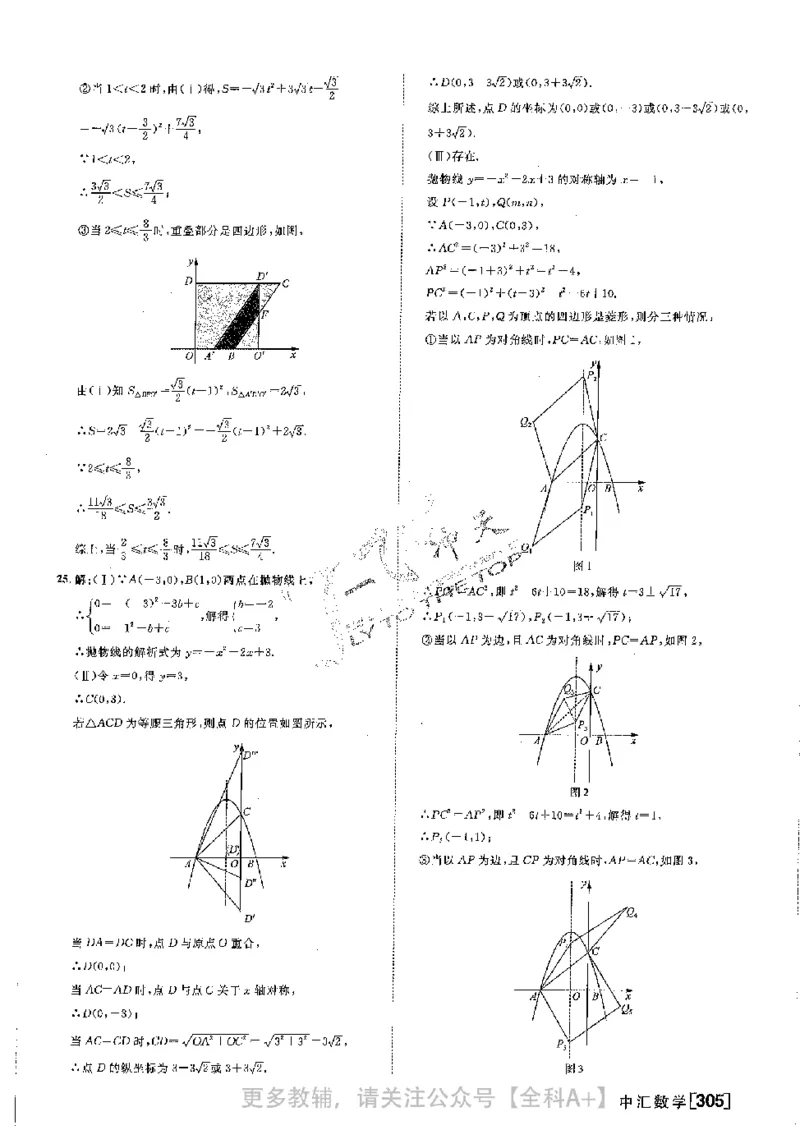 ②当1<t<2时,由(Ⅰ)得,S=-√3t²+3√3t-√3/2
=-√3(t-3/2)²+7√3/4,
∵1<t<2,
∴3√3/2<S≤7√3/4;
③当2≤t≤8/3时,重叠部分是四边形,如图,
y
D D' C
F
O A' B O' x
由(Ⅰ)知S =√3/2(t-1)²,S =2√3,
∴S=2√3 √3/2(t-1)²=-√3/2(t-1)²+2√3.
∵2≤t≤8/3,
∴11√3/18≤S≤3√3/2.
综上,当2/3≤t≤8/3时,11√3/18≤S≤7√3/4.
25.解:(Ⅰ)∵A(-3,0),B(1,0)两点在抛物线上,
∴{0=-(-3)²-3b+c 0=-1²+b+c ,解得{b=-2 c=3 ,
∴抛物线的解析式为y=-x²-2x+3.
(Ⅱ)令x=0,得y=3,
∴C(0,3).
若△ACD为等腰三角形,则点D的位置如图所示,
y D'''
C
(D)
A O B x
D''
D'
当DA=DC时,点D与原点O重合,
∴D(0,0);
当AC=AD时,点D与点C关于x轴对称,
∴D(0,-3);
当AC=CD时,CD=√OA²+OC²=√3²+3²=3√2,
∴点D的纵坐标为3-3√2或3+3√2,
∴D(0,3-3√2)或(0,3+3√2).
综上所述,点D的坐标为(0,0)或(0,-3)或(0,3-3√2)或(0,
3+3√2).
(Ⅲ)存在.
抛物线y=-x²-2x+3的对称轴为x=-1,
设P(-1,t),Q(m,n),
∵A(-3,0),C(0,3),
∴AC²=(-3)²+3²=18,
AP²=(-1+3)²+t²=t²+4,
PC²=(-1)²+(t-3)²=t²-6t+10.
若以A,C,P,Q为顶点的四边形是菱形,则分三种情况:
①当以AP为对角线时,PC=AC,如图1,
y
P₂
Q₂
C
A O B x
P₁
Q₁
图1
∴PC²=AC²,即t²-6t+10=18,解得t=3±√17,
∴P₁(-1,3-√17),P₂(-1,3+√17);
②当以AP为边,且AC为对角线时,PC=AP,如图2,
y
Q₃ C
P₃
A O B x
图2
∴PC²=AP²,即t²-6t+10=t²+4,解得t=1,
∴P₃(-1,1);
③当以AP为边,且CP为对角线时,AP=AC,如图3,
y
Q₄
P₄ C
A O B x
Q₅
P₅
图3
一飞冲天
FLY TO THE TOP
更多教辅,请关注公众号【全科A+】
中汇数学[305]